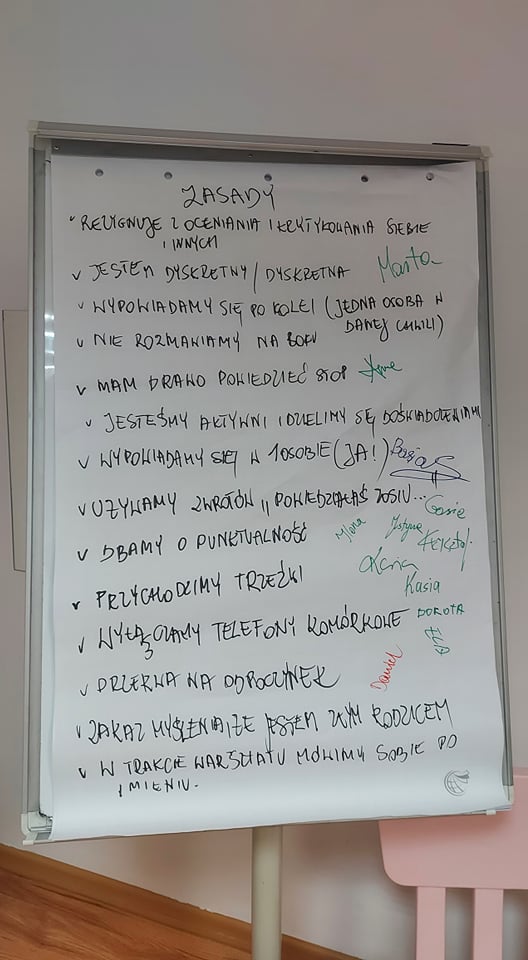 ZASADY
REZYGNUJĘ Z OCENIANIA I KRYTYKOWANIA SIEBIE
I INNYCH
✓ JESTEM DYSKRETNY / DYSKRETNA Marta
✓ WYPOWIADAMY SIĘ PO KOLEI (JEDNA OSOBA W
DANEJ CHWILI)
✓ NIE ROZMAWIAMY NA BOKU
✓ MAM PRAWO POWIEDZIEĆ STOP
✓ JESTEŚMY AKTYWNI I DZIELIMY SIĘ DOŚWIADCZENIAMI
✓ WYPOWIADAMY SIĘ W 1 OSOBIE (JA!) Basia
✓ UŻYWAMY ZWROTÓW „POWIEDZIAŁAŚ ZOSIU... Gosia
✓ DBAMY O PUNKTUALNOŚĆ Justyna Krzysztof
✓ PRZYCHODZIMY TRZEŹWI Kasia
✓ WYŁĄCZAMY TELEFONY KOMÓRKOWE DOROTA
✓ PRZERWA NA ODPOCZYNEK Daniel
✓ ZAKAZ MYŚLENIA, ŻE JESTEM ZŁYM RODZICEM
✓ W TRAKCIE WARSZTATU MÓWIMY SOBIE PO
IMIENIU.